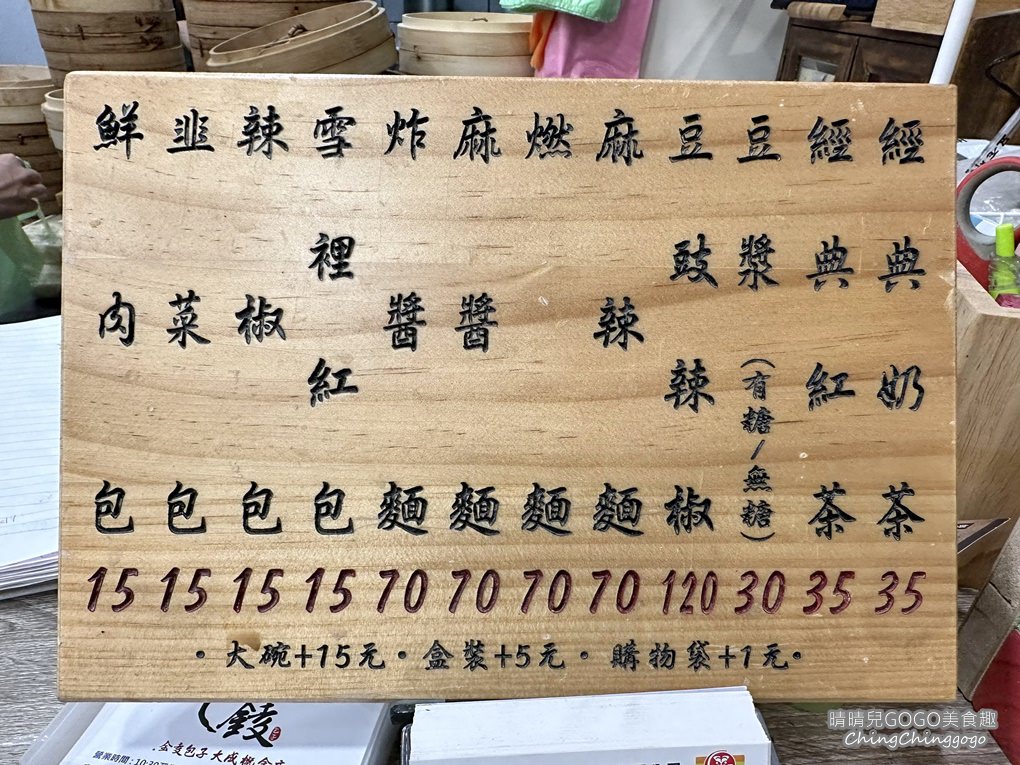 鮮肉包 15
韭菜包 15
辣椒包 15
雪裡紅包 15
炸醬麵 70
麻醬麵 70
燃麵 70
麻辣麵 70
豆豉辣椒 120
豆漿（有糖/無糖） 30
經典紅茶 35
經典奶茶 35
・大碗+15元・盒裝+5元・購物袋+1元・
晴晴兒GOGO美食趣
ChingChinggogo